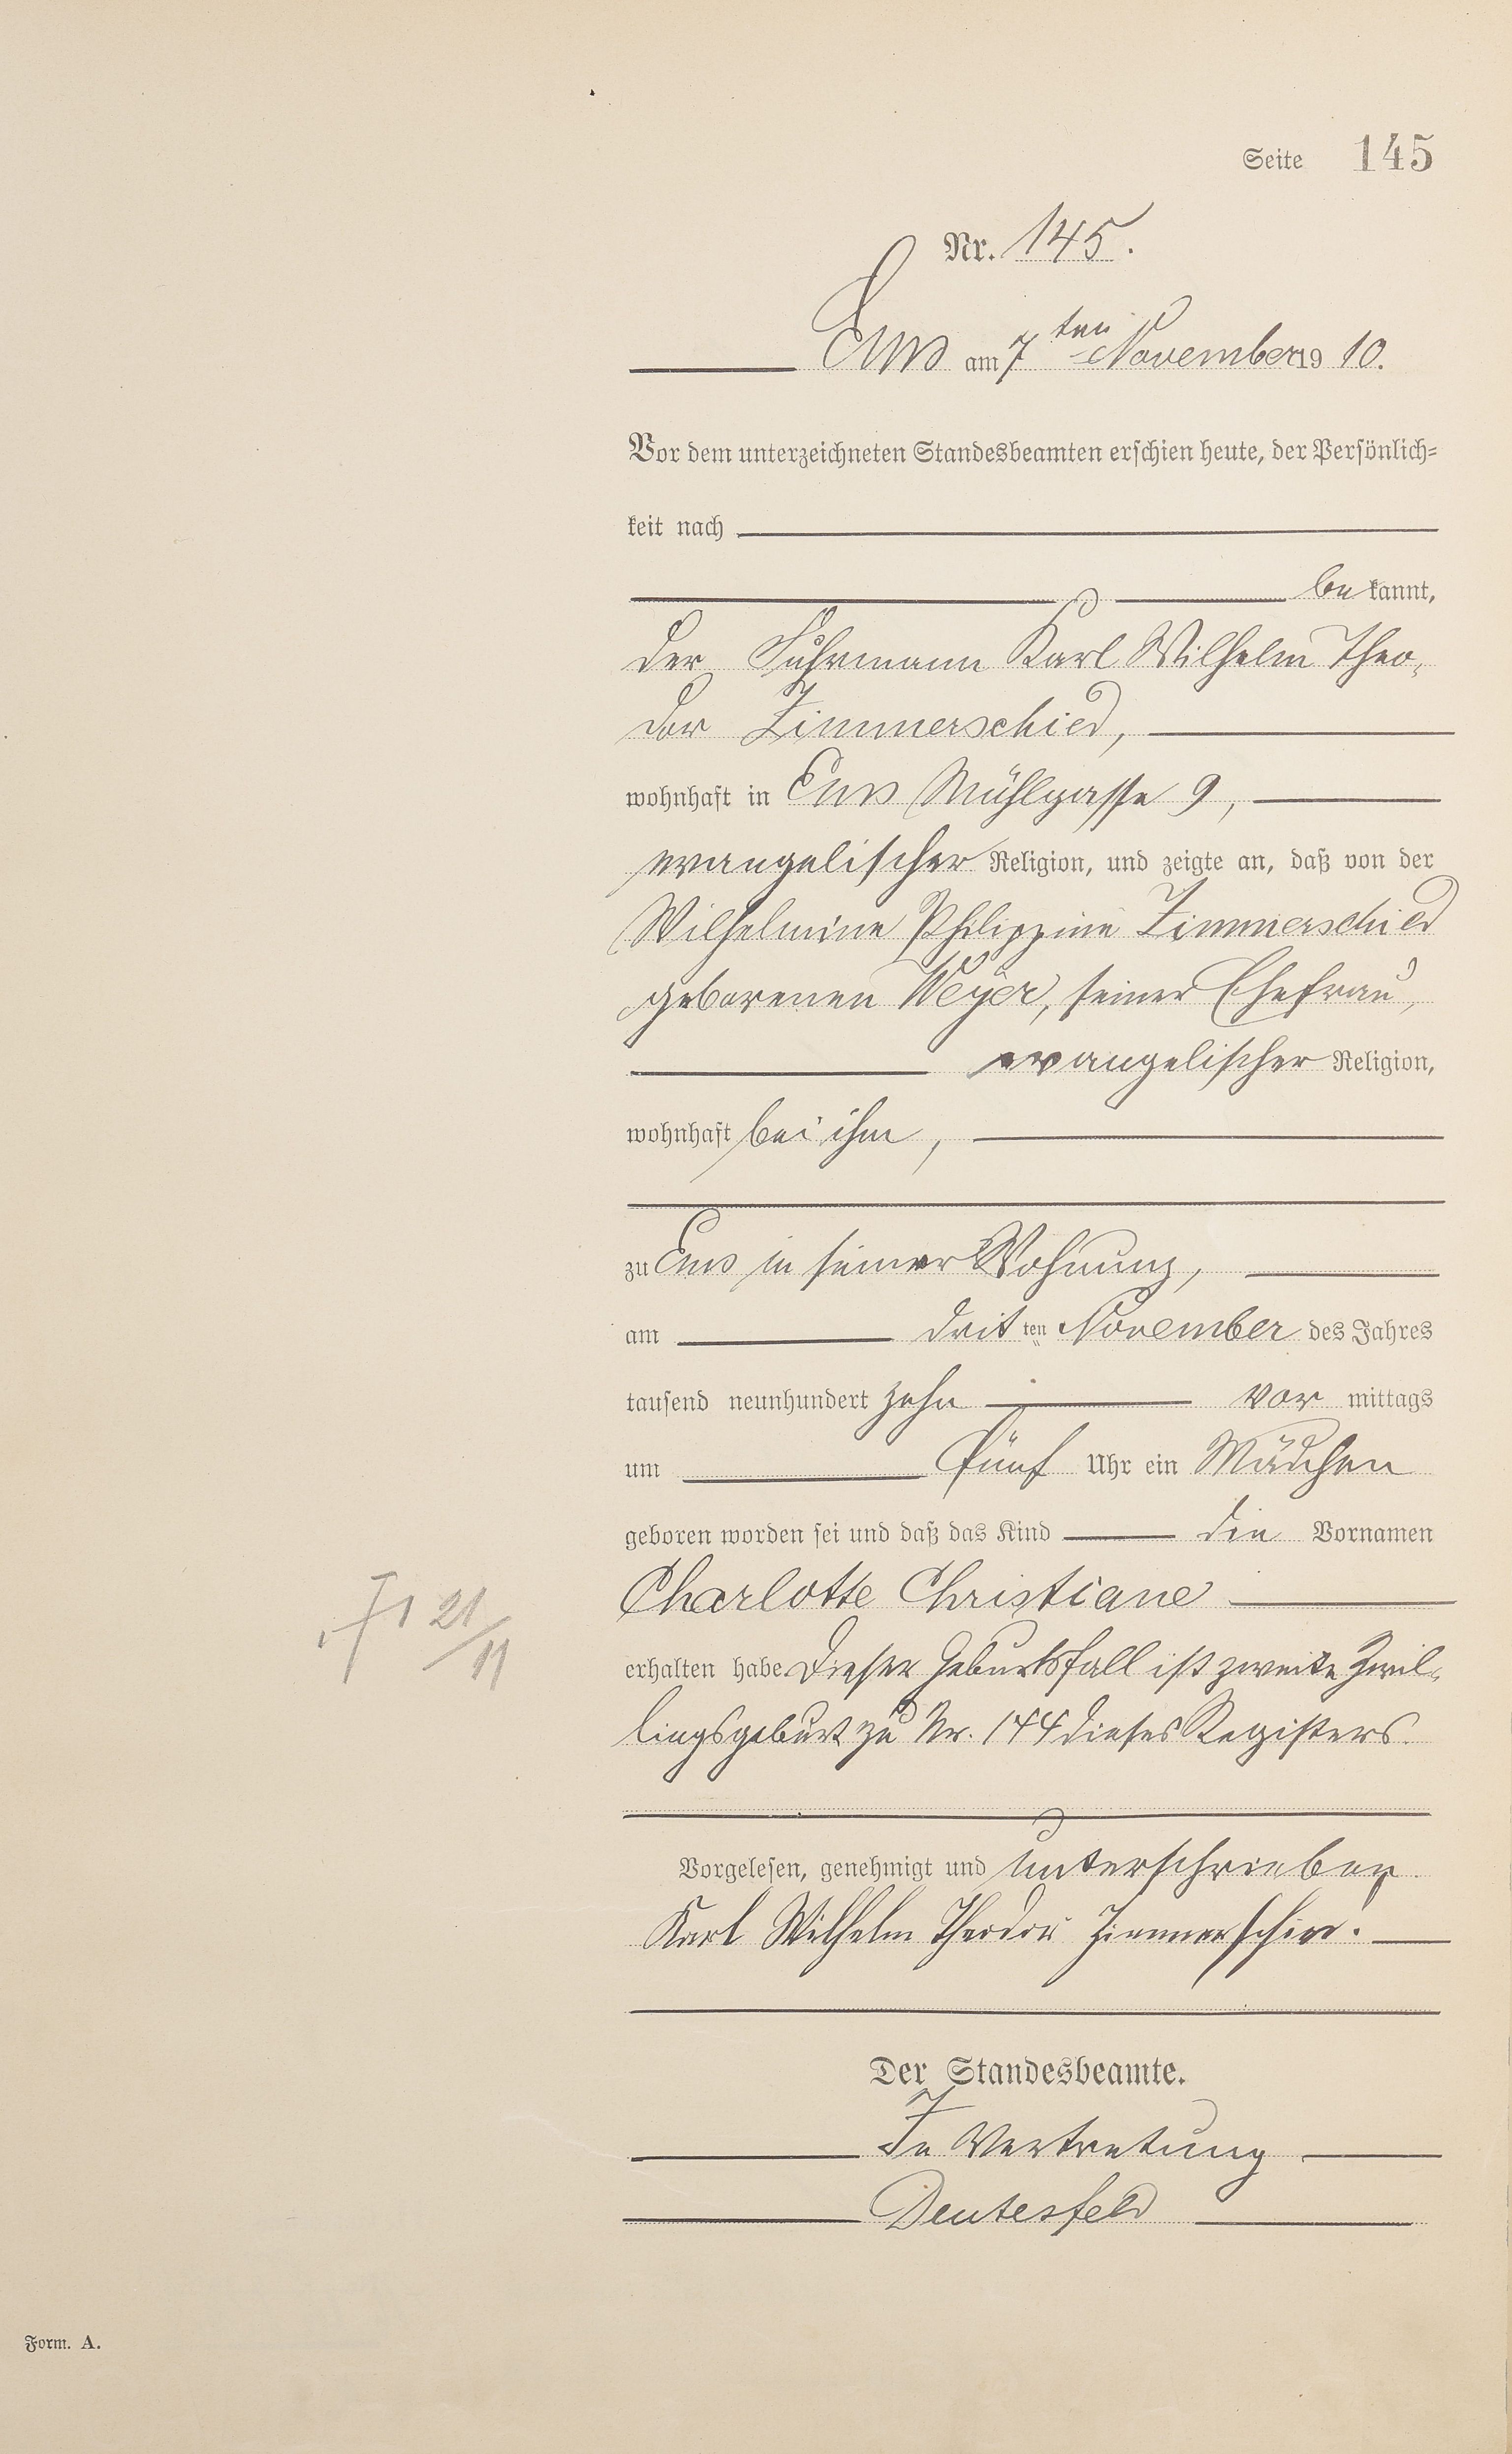 Seite 145
Nr. 145.
Ems am 7ten November 1910.
Vor dem unterzeichneten Standesbeamten erschien heute, der Persönlich-
keit nach
be kannt,
der Fuhrmann Karl Wilhelm Theo-
dor Zimmerschied,
wohnhaft in Ems Mühlgasse 9,
evangelischer Religion, und zeigte an, daß von der
Wilhelmine Philippine Zimmerschied
geborenen Weyer, seiner Ehefrau,
evangelischer Religion,
wohnhaft bei ihm,
zu Ems in seiner Wohnung,
am dritten November des Jahres
tausend neunhundert zehn vor mittags
um fünf Uhr ein Mädchen
geboren worden sei und daß das Kind die Vornamen
Charlotte Christiane
21/11
erhalten habe Dieser Geburtsfall ist zweite Zwil-
lingsgeburt zu Nr. 144 dieses Registers.
Vorgelesen, genehmigt und unterschrieben
Karl Wilhelm Theodor Zimmerschied.
Der Standesbeamte.
In Vertretung
Deutesfeld
Form. A.